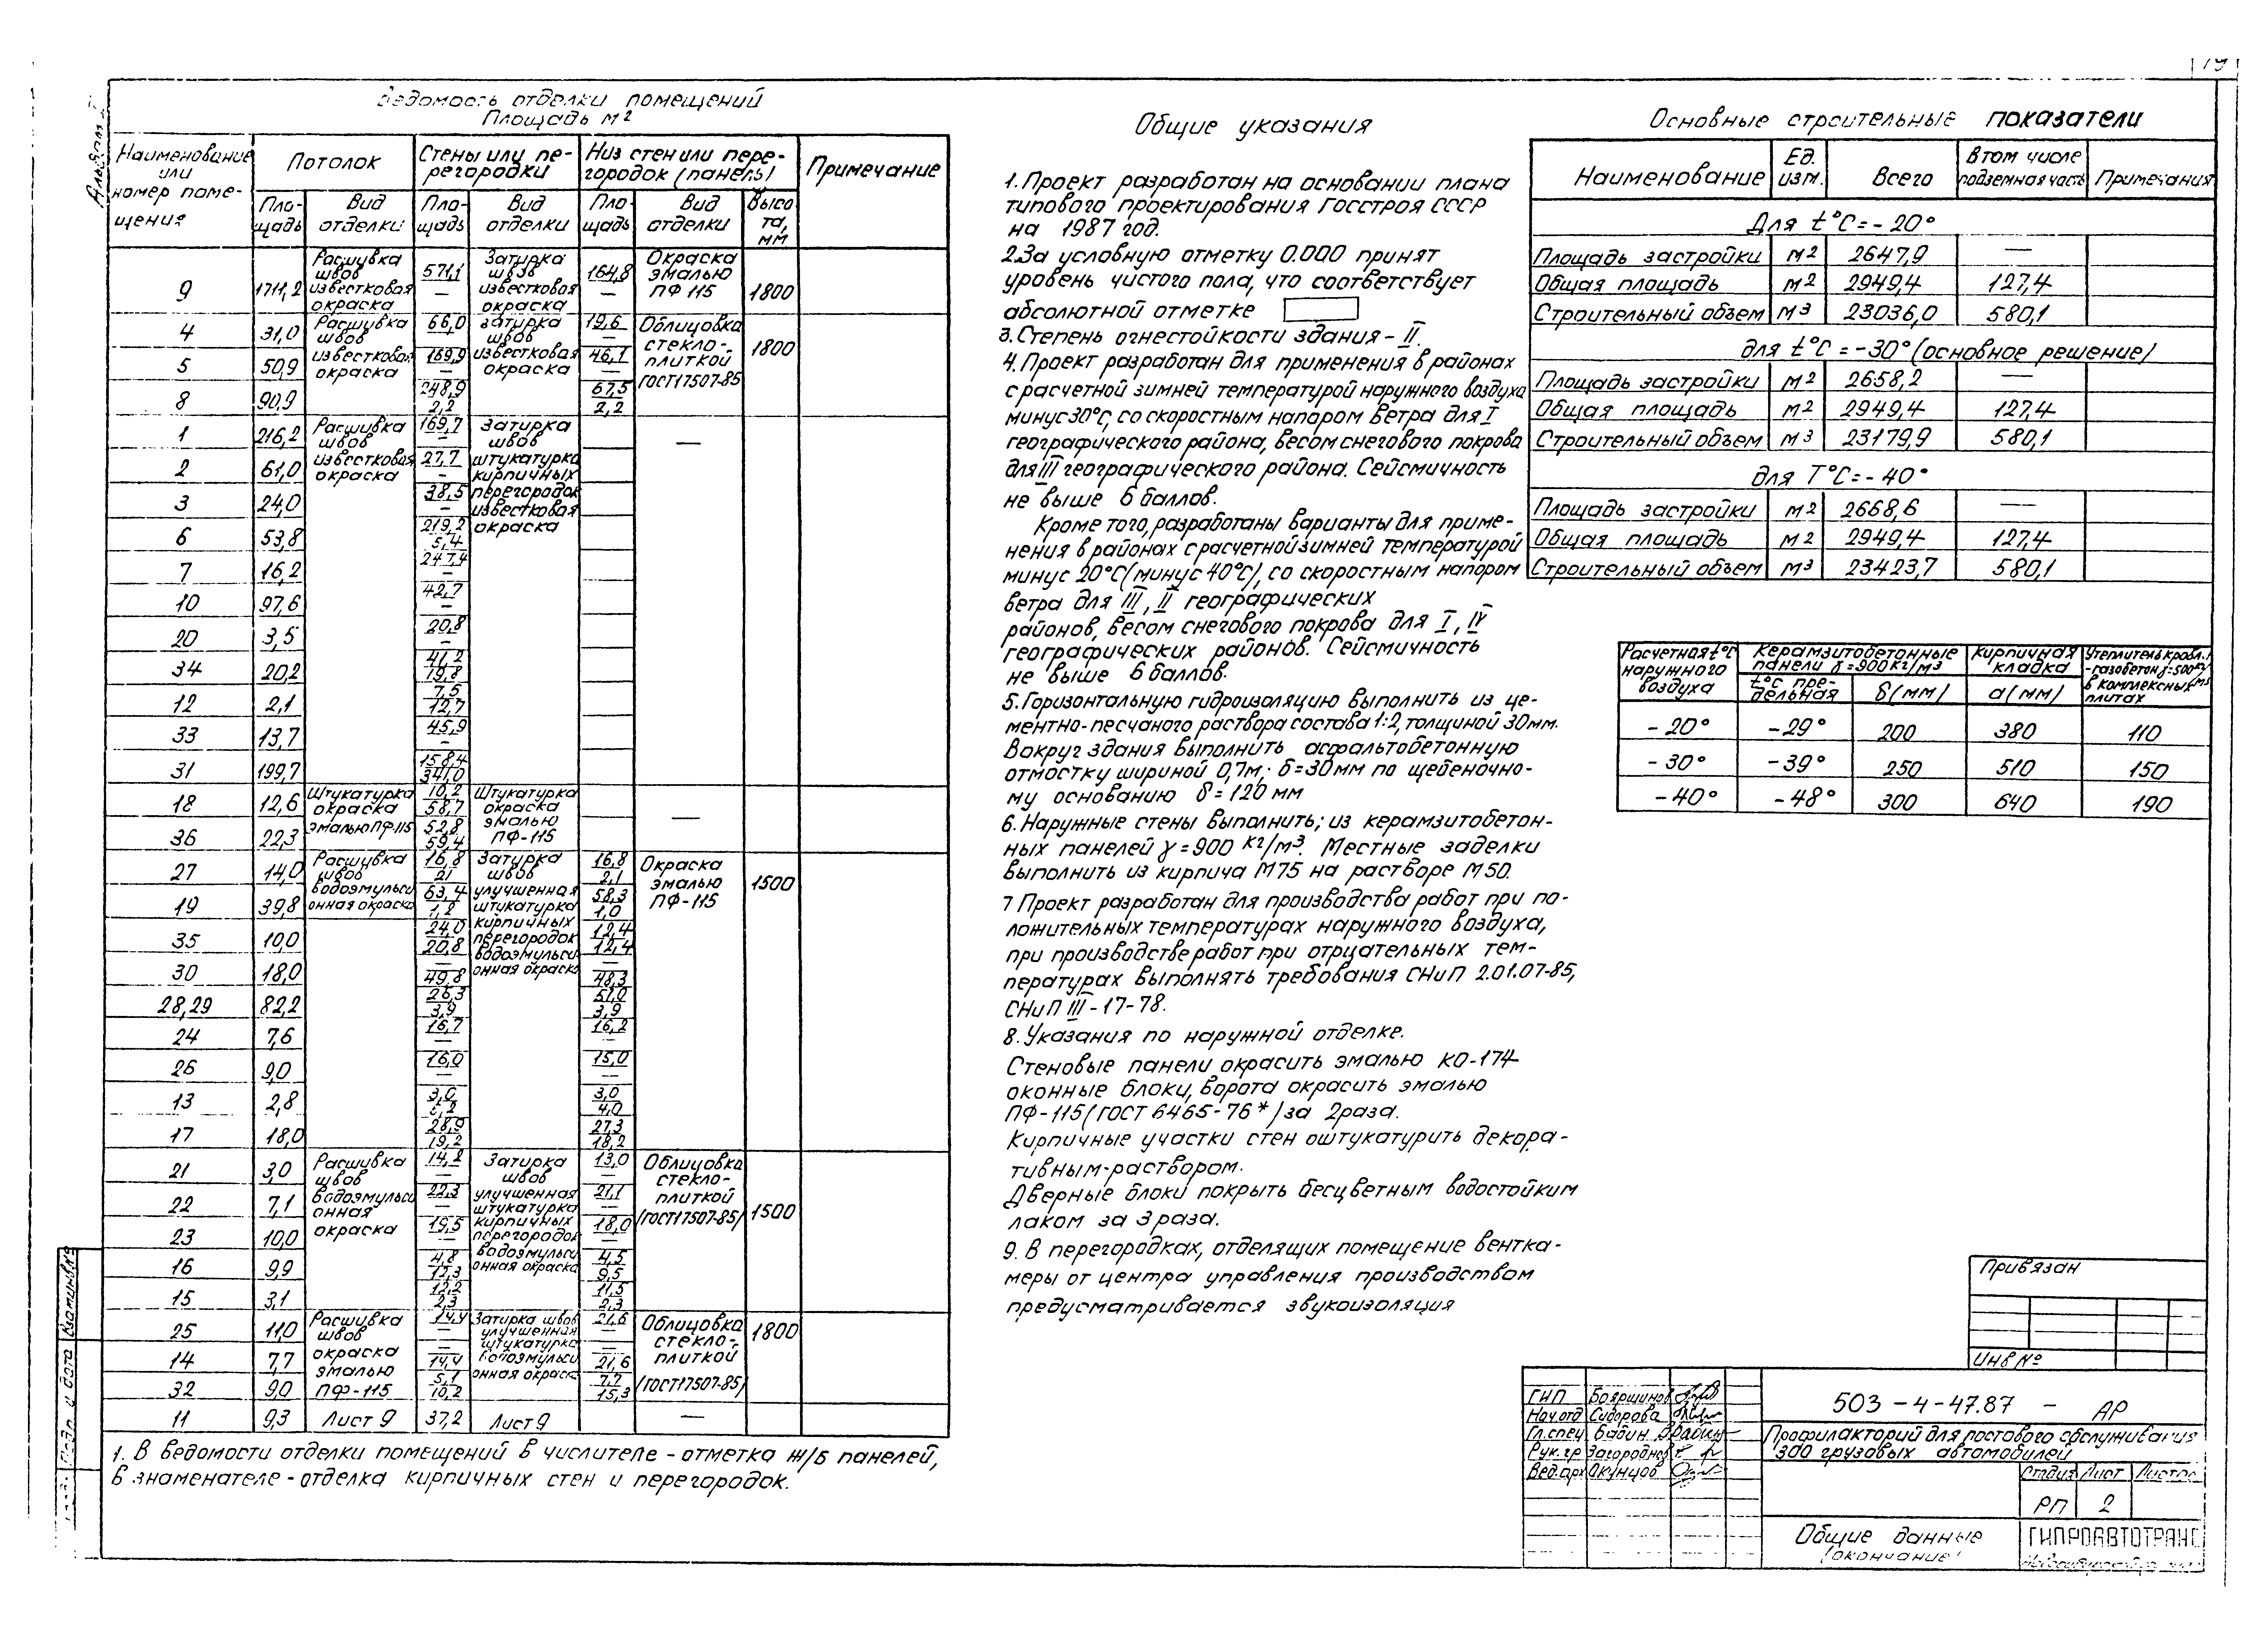 19
Альбом
Ведомость отделки помещений
Площадь м2
Наименование или номер поме- щения
Потолок
Стены или пе- регородки
Низ стен или пере- городок (панель)
Примечание
Пло- щадь
Вид отделки
Пло- щадь
Вид отделки
Пло- щадь
Вид отделки
Высо та, мм
9 1711,2 Расшивка швов известковая окраска 571,1 — Затирка швов известковая окраска 164,8 — Окраска эмалью ПФ 115 1800
4 31,0 Расшивка швов известковая окраска 66,0 затирка швов известковая окраска 19,6 — Облицовка стекло- плиткой ГОСТ17507-85 1800
5 50,9 169,9 — 46,1 —
8 90,9 248,9 2,2 67,5 2,2
1 216,2 Расшивка швов известковая окраска 169,7 — Затирка швов штукатурка кирпичных перегородок известковая окраска —
2 61,0 27,7 —
3 24,0 38,5 —
6 53,8 219,2 5,4
7 16,2 247,4 —
10 97,6 42,7 —
20 3,5 20,8 —
34 20,2 41,2 19,8
12 2,1 7,5 12,7
33 13,7 45,9 —
31 199,7 158,4 341,0
18 12,6 Штукатурка окраска эмалью ПФ-115 10,2 58,7 Штукатурка окраска эмалью ПФ-115 —
36 22,3 52,8 59,4
27 14,0 Расшивка швов водоэмульси онная окраска 16,8 21 Затирка швов улучшенная штукатурка кирпичных перегородок водоэмульси онная окраска 16,8 2,1 Окраска эмалью ПФ-115 1500
19 39,8 63,4 1,2 58,3 1,0
35 10,0 24,0 20,8 12,4 12,4
30 18,0 — 49,8 — 48,3
28,29 82,2 26,3 3,9 51,0 3,9
24 7,6 16,7 — 16,2 —
26 9,0 16,0 — 15,0 —
13 2,8 3,0 3,0 4,0
17 18,0 28,9 19,2 27,3 18,2
21 3,0 Расшивка швов водоэмульси онная окраска 14,2 — Затирка швов улучшенная штукатурка кирпичных перегородок водоэмульси онная окраска 13,0 — Облицовка стекло- плиткой /ГОСТ17507-85/ 1500
22 7,1 22,3 — 21,1 —
23 10,0 19,5 — 18,0 —
16 9,9 4,8 12,3 4,5 9,5
15 3,1 12,2 2,3 11,5 2,3
25 11,0 Расшивка швов окраска эмалью ПФ-115 14,4 — Затирка швов улучшенная штукатурка водоэмульси онная окраска 21,6 — Облицовка стекло- плиткой /ГОСТ17507-85/ 1800
14 7,7 — 14,4 — 21,6
32 9,0 5,1 10,2 7,7 15,3
11 9,3 Лист 9 37,2 Лист 9 —
1. В ведомости отделки помещений в числителе - отметка ж/б панелей,
в знаменателе - отделка кирпичных стен и перегородок.
Общие указания
1. Проект разработан на основании плана
типового проектирования Госстроя СССР
на 1987 год.
2. За условную отметку 0.000 принят
уровень чистого пола, что соответствует
абсолютной отметке
3. Степень огнестойкости здания - II.
4. Проект разработан для применения в районах
с расчетной зимней температурой наружного воздуха
минус 30°С, со скоростным напором ветра для I
географического района, весом снегового покрова
для III географического района. Сейсмичность
не выше 6 баллов.
Кроме того, разработаны варианты для приме-
нения в районах с расчетной зимней температурой
минус 20°С (минус 40°С), со скоростным напором
ветра для III, II географических
районов, весом снегового покрова для I, IV
географических районов. Сейсмичность
не выше 6 баллов.
5. Горизонтальную гидроизоляцию выполнить из це-
ментно-песчаного раствора состава 1:2, толщиной 30мм.
Вокруг здания выполнить асфальтобетонную
отмостку шириной 0,7м. δ=30мм по щебеночно-
му основанию δ=120 мм
6. Наружные стены выполнить; из керамзитобетон-
ных панелей γ=900 кг/м3. Местные заделки
выполнить из кирпича М75 на растворе М50.
7 Проект разработан для производства работ при по-
ложительных температурах наружного воздуха,
при производстве работ при отрцательных тем-
пературах выполнять требования СНиП 2.01.07-85,
СНиП III-17-78.
8. Указания по наружной отделке.
Стеновые панели окрасить эмалью КО-174
оконные блоки, ворота окрасить эмалью
ПФ-115 (ГОСТ 6465-76*) за 2раза.
Кирпичные участки стен оштукатурить декора-
тивным-раствором.
Дверные блоки покрыть бесцветным водостойким
лаком за 3 раза.
9. В перегородках, отделящих помещение вентка-
меры от центра управления производством
предусматривается звукоизоляция
Основные строительные показатели
Наименование Ед. изм. Всего В том числе подземная часть Примечания
Для t°С=-20°
Площадь застройки м2 2647,9 —
Общая площадь м2 2949,4 127,4
Строительный объем м3 23036,0 580,1
для t°С=-30° (основное решение)
Площадь застройки м2 2658,2 —
Общая площадь м2 2949,4 127,4
Строительный объем м3 23179,9 580,1
для Т°С=-40°
Площадь застройки м2 2668,6 —
Общая площадь м2 2949,4 127,4
Строительный объем м3 23423,7 580,1
Расчетная t°С наружного воздуха
Керамзитобетонные панели γ=900кг/м3
t°С пре- дельная
δ (мм)
Кирпичная кладка
а (мм)
Утеплитель кровл. -газобетон γ=500кг/м3 в комплексных плитах
-20° -29° 200 380 110
-30° -39° 250 510 150
-40° -48° 300 640 190
Привязан
Инв №
ГИП Бояршинов
Нач.отд Сидорова
Гл.спец Бабин
Рук.гр Загороднов
Вед.арх Акунцов
503-4-47.87 - АР
Профилакторий для постового обслуживания
300 грузовых автомобилей
Стадия Лист Листов
РП 2
Общие данные
(окончание)
ГИПРОАВТОТРАНС
Подп. и дата
Взам.инв.№